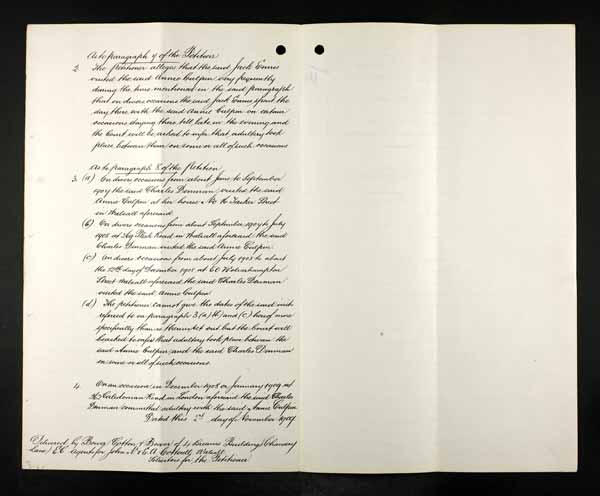 As to paragraph 7 of the Petition
2. The Petitioner alleges that the said Jack Ennis
visited the said Annie Culpin very frequently
during the time mentioned in the said paragraph
that on divers occasions the said Jack Ennis spent the
day there with the said Annie Culpin on certain
occasions staying there till late in the evening and
the Court will be asked to infer that adultery took
place between them on some or all of such occasions
As to paragraph 8 of the Petition
3. (a) On divers occasions from about June to September
1907 the said Charles Denman visited the said
Annie Culpin at her house Street
in Walsall aforesaid
(b) On divers occasions from about September 1907 to July
1908 at Road in Walsall aforesaid the said
Charles Denman visited the said Annie Culpin
(c) On divers occasions from about July 1908 to about
the 12th day of December 1908 at 60 Wolverhampton
Street Walsall aforesaid the said Charles Denman
visited the said Annie Culpin
(d) The petitioner cannot give the dates of the said visits
referred to in paragraphs 3 (a) (b) and (c) hereof more
specifically than is therein set out but the Court will
be asked to infer that adultery took place between the
said Annie Culpin and the said Charles Denman
on some or all of such occasions.
4. On an occasion in December 1908 or January 1909 at
Caledonian Road in London aforesaid the said Charles
Denman committed adultery with the said Annie Culpin
Dated this day of November 1909
Delivered by Bower Cotton & Bower of 4 Breams Buildings Chancery
Lane E.C. Agents for John Cotterell Walsall
Solicitors for the Petitioner